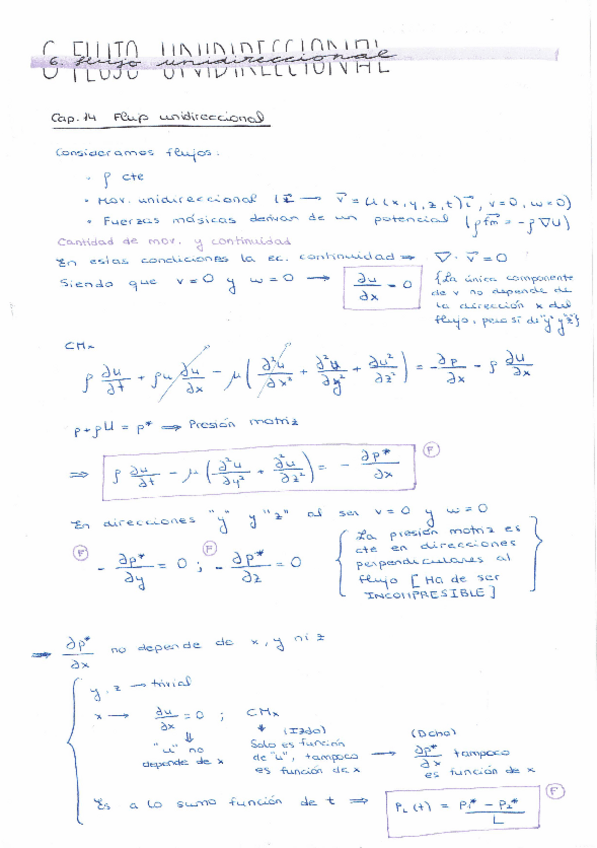 6. flujo unidireccional
6 FLUJO UNIDIRECCIONAL
Cap. 14 Flujo unidireccional
Consideramos flujos:
• ρ cte
• Mov. unidireccional (x̄ → v⃗ = u(x,y,z,t) i⃗, v=0, w=0)
• Fuerzas másicas derivan de un potencial (ρf⃗m = -ρ∇U)
Cantidad de mov. y continuidad
En estas condiciones la ec. continuidad ⇒ ∇·v⃗ = 0
Siendo que v=0 y w=0 → ∂u/∂x = 0
{La única componente
de v no depende de
la dirección x del
flujo, pero sí de "y" y "z"}
CMx
ρ ∂u/∂t + ρu ∂u/∂x - μ(∂²u/∂x² + ∂²u/∂y² + ∂u²/∂z²) = -∂p/∂x - ρ ∂U/∂x
p+ρU = p* ⇒ Presión motriz
⇒ ρ ∂u/∂t - μ(∂²u/∂y² + ∂²u/∂z²) = - ∂p*/∂x (F)
En direcciones "y" y "z" al ser v=0 y w=0
(F) - ∂p*/∂y = 0 ; (F) - ∂p*/∂z = 0
{La presión motriz es
cte en direcciones
perpendiculares al
flujo [Ha de ser
INCOMPRESIBLE]}
⇒ ∂p*/∂x no depende de x, y ni z
y, z → trivial
x → ∂u/∂x = 0 ; CMx
⇓ "u" no
depende de x
↓ (Izdo)
Solo es función
de "u", tampoco
es función de x
→ (Dcho)
∂p*/∂x tampoco
es función de x
Es a lo sumo función de t ⇒ PL(t) = (P1* - P2*)/L (F)